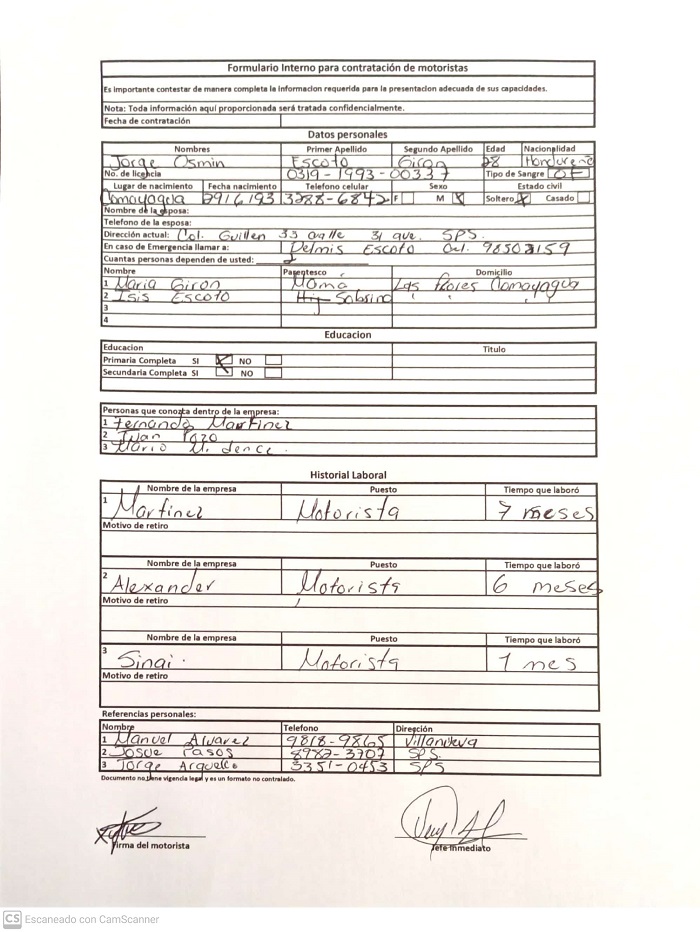 Formulario Interno para contratación de motoristas
Es importante contestar de manera completa la informacion requerida para la presentacion adecuada de sus capacidades.
Nota: Toda información aquí proporcionada será tratada confidencialmente.
Fecha de contratación
Datos personales
Nombres Primer Apellido Segundo Apellido Edad Nacionalidad
Jorge Osmin Escoto Giron 28 Hondureño
No. de licencia 0319-1993-00337 Tipo de Sangre
Lugar de nacimiento Fecha nacimiento Telefono celular Sexo Estado civil
Comayagua 3288-6842 F M X Soltero X Casado
Nombre de la esposa:
Telefono de la esposa:
Dirección actual: Col. Guillen 33 calle 31 ave. SPS.
En caso de Emergencia llamar a: Delmis Escoto Cel. 98502159
Cuantas personas dependen de usted: 2
Nombre Parentesco Domicilio
1 Maria Giron Mama Las Flores Comayagua
2 Isis Escoto Sobrina
3
4
Educacion
Educacion Titulo
Primaria Completa SI X NO
Secundaria Completa SI X NO
Personas que conozca dentro de la empresa:
1 Fernando Martinez
2 Ivan Pazo
3 Mario
Historial Laboral
Nombre de la empresa Puesto Tiempo que laboró
1 Martinez Motorista 7 meses
Motivo de retiro
Nombre de la empresa Puesto Tiempo que laboró
2 Alexander Motorista 6 meses
Motivo de retiro
Nombre de la empresa Puesto Tiempo que laboró
3 Sinai. Motorista 1 mes
Motivo de retiro
Referencias personales:
Nombre Telefono Dirección
1 Manuel Alvarez 9818-9865 Villanueva
2 Josue Pasos 8987-3707 SPS.
3 Jorge Arguello 3351-0453 SPS
Documento no tiene vigencia legal y es un formato no controlado.
Firma del motorista Jefe Inmediato
CS Escaneado con CamScanner